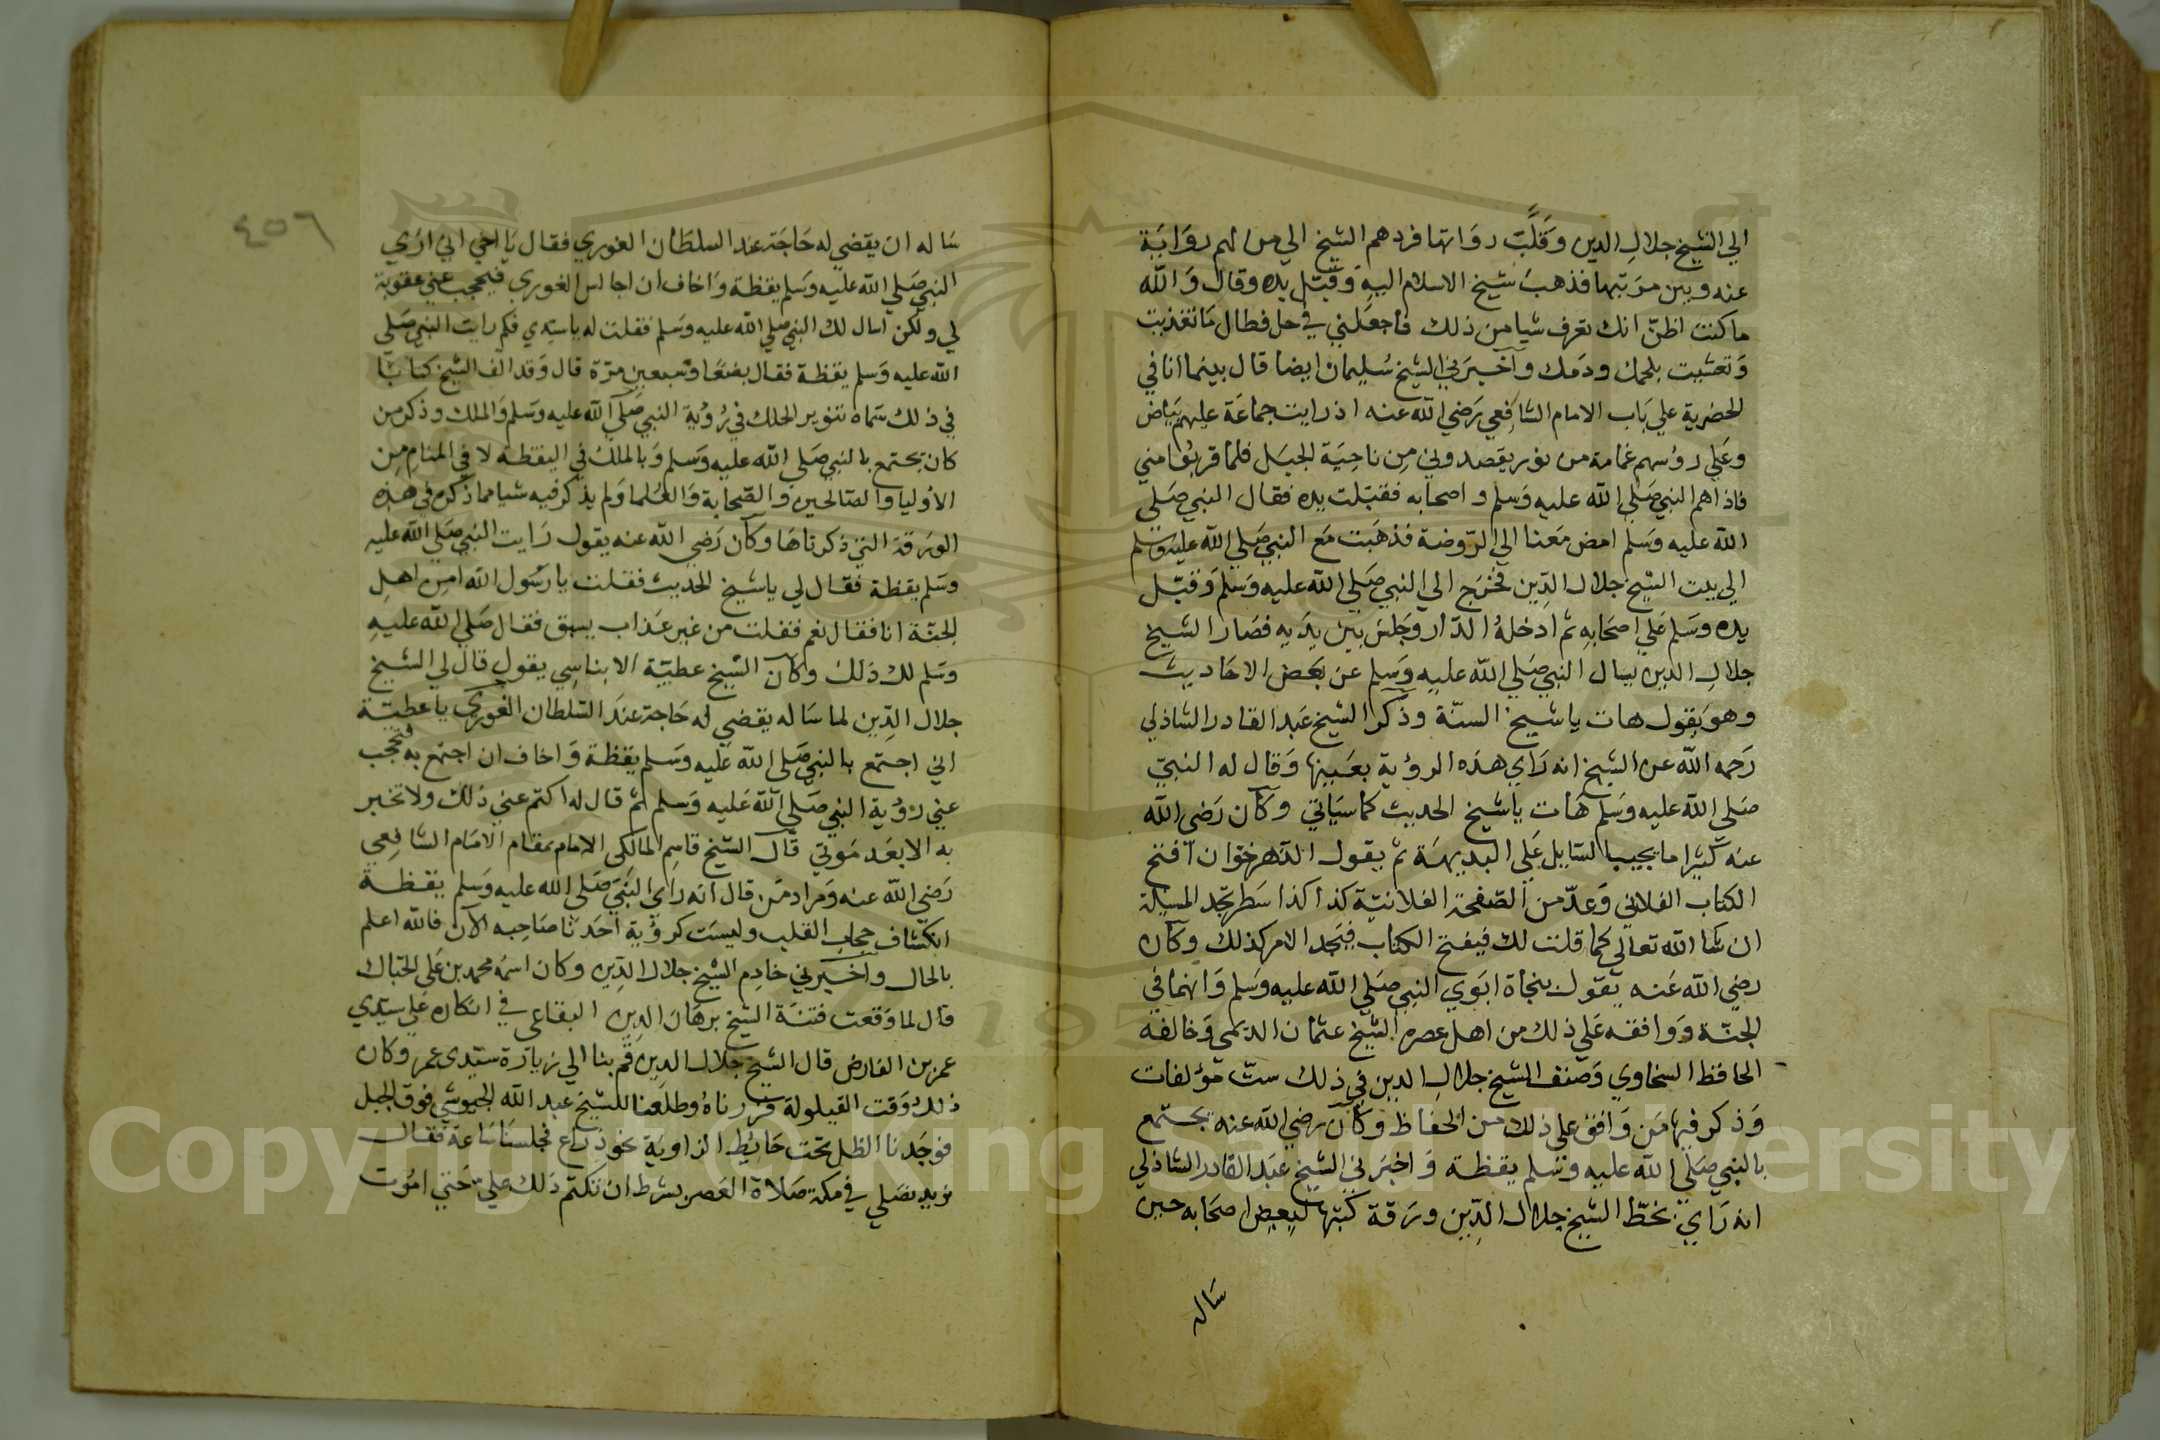 الي الشيخ جلال الدين وقلّبت رواتها فردهم الشيخ الي من لهم رواية
عنه وبين مرتبها فذهب شيخ الاسلام اليه وقبّل يده وقال والله
ما كنت اظنّ انك تعرف شيا من ذلك فاجعلني في حل فطال ما تغذيت
وتعشيت بلحمك ودمك واخبرني الشيخ سليمان ايضا قال بينما انا في
الخضرية علي باب الامام الشافعي رضي الله عنه اذ رايت جماعة عليهم بياض
وعلي رؤسهم غمامة من نور يقصدوني من ناحية الجبل فلما قربوا مني
فاذا هم النبي صلي الله عليه وسلم واصحابه فقبّلت يده فقال النبي صلي
الله عليه وسلم امض معنا الي الروضة فذهبت مع النبي صلي الله عليه وسلم
الي بيت الشيخ جلال الدين فخرج الي النبي صلي الله عليه وسلم وقبّل
يده وسلم علي اصحابه ثم ادخله الدار وجلس بين يديه فصار الشيخ
جلال الدين يسال النبي صلي الله عليه وسلم عن بعض الاحاديث
وهو يقول هات يا شيخ السنّة وذكر الشيخ عبد القادر الشاذلي
رحمه الله عن الشيخ انه راي هذه الرؤية بعينها وقال له النبيّ
صلي الله عليه وسلم هات يا شيخ الحديث كما سياتي وكان رضي الله
عنه كثيرا ما يجيب السايل علي البديهة ثم يقول افتح
الكتاب الفلاني وعدّ من الصفحة الفلانيّة كذا كذا سطر تجد المسيلة
ان شا الله تعالي كما قلت لك فيفتح الكتاب فيجد الامر كذلك وكان
رضي الله عنه يقول بنجاة ابوي النبي صلي الله عليه وسلم وانهما في
الجنّة ووافقه علي ذلك من اهل عصره الشيخ عثمان الديمي وخالفه
الحافظ السخاوي وصنف الشيخ جلال الدين في ذلك ستّ مؤلفات
وذكر فيها من وافق علي ذلك من الحفاظ وكان رضي الله عنه يجتمع
بالنبي صلي الله عليه وسلم يقظة واخبرني الشيخ عبد القادر الشاذلي
انه راي بخطّ الشيخ جلال الدّين ورقة كتبها لبعض اصحابه حين
ساله
٤٥٦
ساله ان يقضي له حاجة عند السلطان الغوري فقال يا اخي اني اري
النبي صلي الله عليه وسلم يقظة واخاف ان اجالس الغوري فيحجب عني عقوبة
لي ولكن اسال لك النبي صلي الله عليه وسلم فقلت له يا سيدي فكم رايت النبي صلي
الله عليه وسلم يقظة فقال بضعا وسبعين مرّة قال وقد الّف الشيخ كتابا
في ذلك سماه تنوير الحلك في رؤية النبي صلي الله عليه وسلم والملك وذكر من
كان يجتمع بالنبي صلي الله عليه وسلم وبالملك في اليقظة لا في المنام من
الاوليا والصالحين والصحابة والعلما ولم يذكر فيه شيا مما ذكره في هذه
الورقة التي ذكرناها وكان رضي الله عنه يقول رايت النبي صلي الله عليه
وسلم يقظة فقال لي يا شيخ الحديث فقلت يا رسول الله امن اهل
الجنّة انا فقال نعم فقلت من غير عذاب يسبق فقال صلي الله عليه
وسلم لك ذلك وكان الشيخ عطيّة الابناسي يقول قال لي الشيخ
جلال الدّين لما ساله يقضي له حاجة عند السّلطان الغوري يا عطيّة
اني اجتمع بالنبي صلي الله عليه وسلم يقظة واخاف ان اجتمع به فتحجب
عني رؤية النبي صلي الله عليه وسلم ثم قال له اكتم عني ذلك ولا تخبر
به الا بعد موتي قال الشيخ قاسم المالكي الامام بمقام الامام الشافعي
رضي الله عنه ومراد من قال انه راي النبي صلي الله عليه وسلم يقظة
انكشاف حجاب القلب وليست كرؤية احدنا صاحبه الآن فالله اعلم
بالحال واخبرني خادم الشيخ جلال الدّين وكان اسمه محمد بن علي الحبّاك
قال لما وقعت فتنة الشيخ برهان الدين البقاعي في انكاره علي سيدي
عمر بن الفارض قال الشيخ جلال الدين قم بنا الي زيارة سيدي عمر وكان
ذلك وقت القيلولة فزرناه وطلعنا للشيخ عبد الله الجيوشي فوق الجبل
فوجدنا الظل تحت حايط الزاوية نحو ذراع فجلسنا ساعة فقال
نصلي في مكة صلاة العصر بشرط ان تكتم ذلك عليّ حتي اموت
Copyright © King Saud University